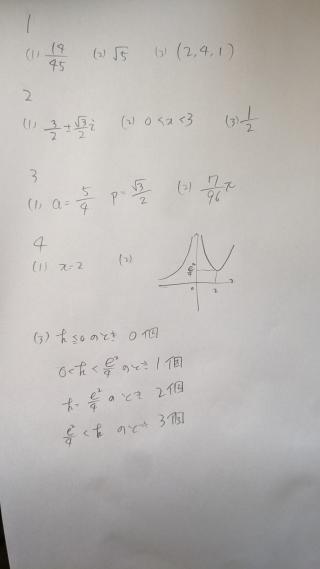 1
(1) 14/45 (2) √5 (3) (2,4,1)
2
(1) 3/2 ± √3/2 i (2) 0<x<3 (3) 1/2
3
(1) a= 5/4 p= √3/2 (2) 17/96 π
4
(1) x=2 (2)
e²/4
0 2 x
(3) k≦0のとき 0個
0<k<e²/4のとき 1個
k=e²/4のとき 2個
e²/4<kのとき 3個